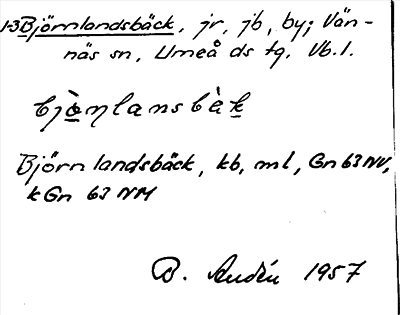 1-3 Björnlandsbäck, jr, jb, by; Vän-
näs sn, Umeå ds tg. Vb. l.
bjò̱ṇlansbàḵ
Björnlandsbäck, kb, ml, Gn 63 NV,
kGn 63 NM
B. Audén 1957